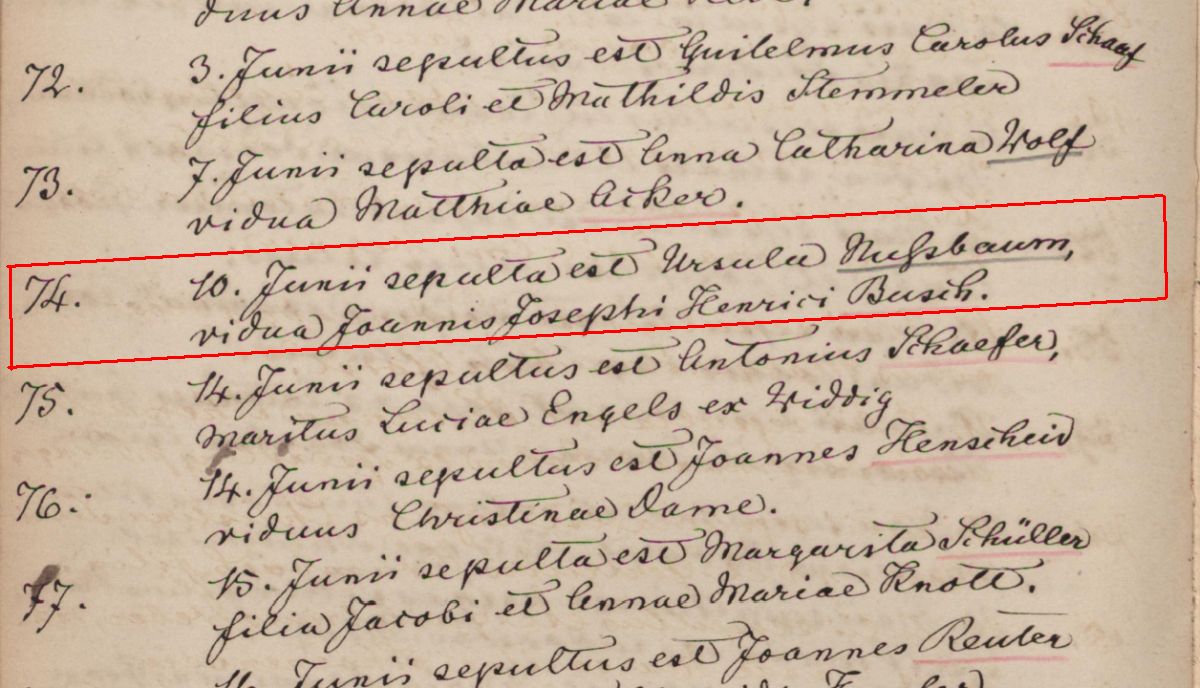 viduus Annae Mariae
72. 3. Junii sepultus est Guilelmus Carolus Schaaf
filius Caroli et Mathildis Stemmeler
73. 7. Junii sepulta est Anna Catharina Wolf
vidua Matthiae Acker.
74. 10. Junii sepulta est Ursula Nußbaum,
vidua Joannis Josephi Henrici Busch.
75. 14. Junii sepultus est Antonius Schaefer,
maritus Luciae Engels ex Widdig
76. 14. Junii sepultus est Joannes Henscheid
viduus Christinae Dame.
77. 15. Junii sepulta est Margarita Schüller
filia Jacobi et Annae Mariae Knott.
Junii sepultus est Joannes Reuter